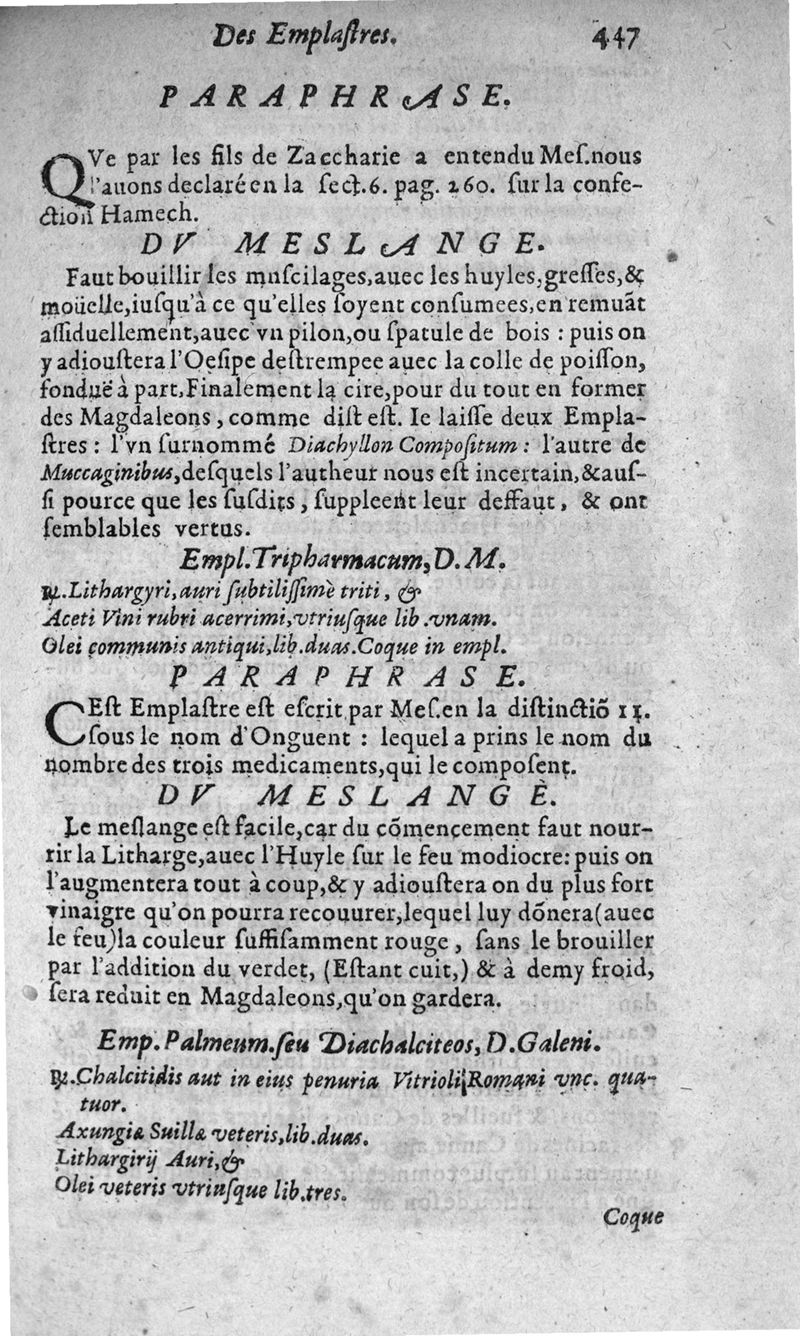 Des Emplaſtres. 447
PARAPHRASE.
QVe par les fils de Zaccharie a entendu Meſ.nous
l'auons declaré en la ſect.6. pag. 260. ſur la confe-
ction Hamech.
DV MESLANGE.
Faut bouillir les muſcilages,auec les huyles,greſſes,&
moüelle,iuſqu'à ce qu'elles ſoyent conſumees,en remuãt
aſſiduellement,auec vn pilon,ou ſpatule de bois : puis on
y adiouſtera l'Oeſipe deſtrempee auec la colle de poiſſon,
fonduë à part,Finalement la cire,pour du tout en former
des Magdaleons , comme diſt eſt. Ie laiſſe deux Empla-
ſtres : l'vn ſurnommé Diachyllon Compoſitum : l'autre de
Muccaginibus,deſquels l'autheur nous eſt incertain,&auſ-
ſi pource que les ſuſdits , ſuppleent leur deffaut , & ont
ſemblables vertus.
Empl.Tripharmacum,D.M.
℞.Lithargyri,auri ſubtiliſſimè triti , &
Aceti Vini rubri acerrimi,vtriuſque lib .vnam.
Olei communis antiqui,lib.duas.Coque in empl.
PARAPHRASE.
CEſt Emplaſtre eſt eſcrit par Meſ.en la diſtinctiõ 11.
ſous le nom d'Onguent : lequel a prins le nom du
nombre des trois medicaments,qui le compoſent.
DV MESLANGE.
Le meſlange eſt facile,car du cõmencement faut nour-
rir la Litharge,auec l'Huyle ſur le feu modiocre: puis on
l'augmentera tout à coup,& y adiouſtera on du plus fort
vinaigre qu'on pourra recouurer,lequel luy dõnera(auec
le feu)la couleur ſuffiſamment rouge , ſans le brouiller
par l'addition du verdet, (Eſtant cuit,) & à demy froid,
ſera reduit en Magdaleons,qu'on gardera.
Emp.Palmeum.ſeu Diachalciteos, D.Galeni.
℞.Chalcitidis aut in eius penuria Vitrioli Romani vnc. qua-
tuor.
Axungiæ Suillæ veteris,lib.duas.
Lithargirij Auri,&
Olei veteris vtriuſque lib.tres.
Coque